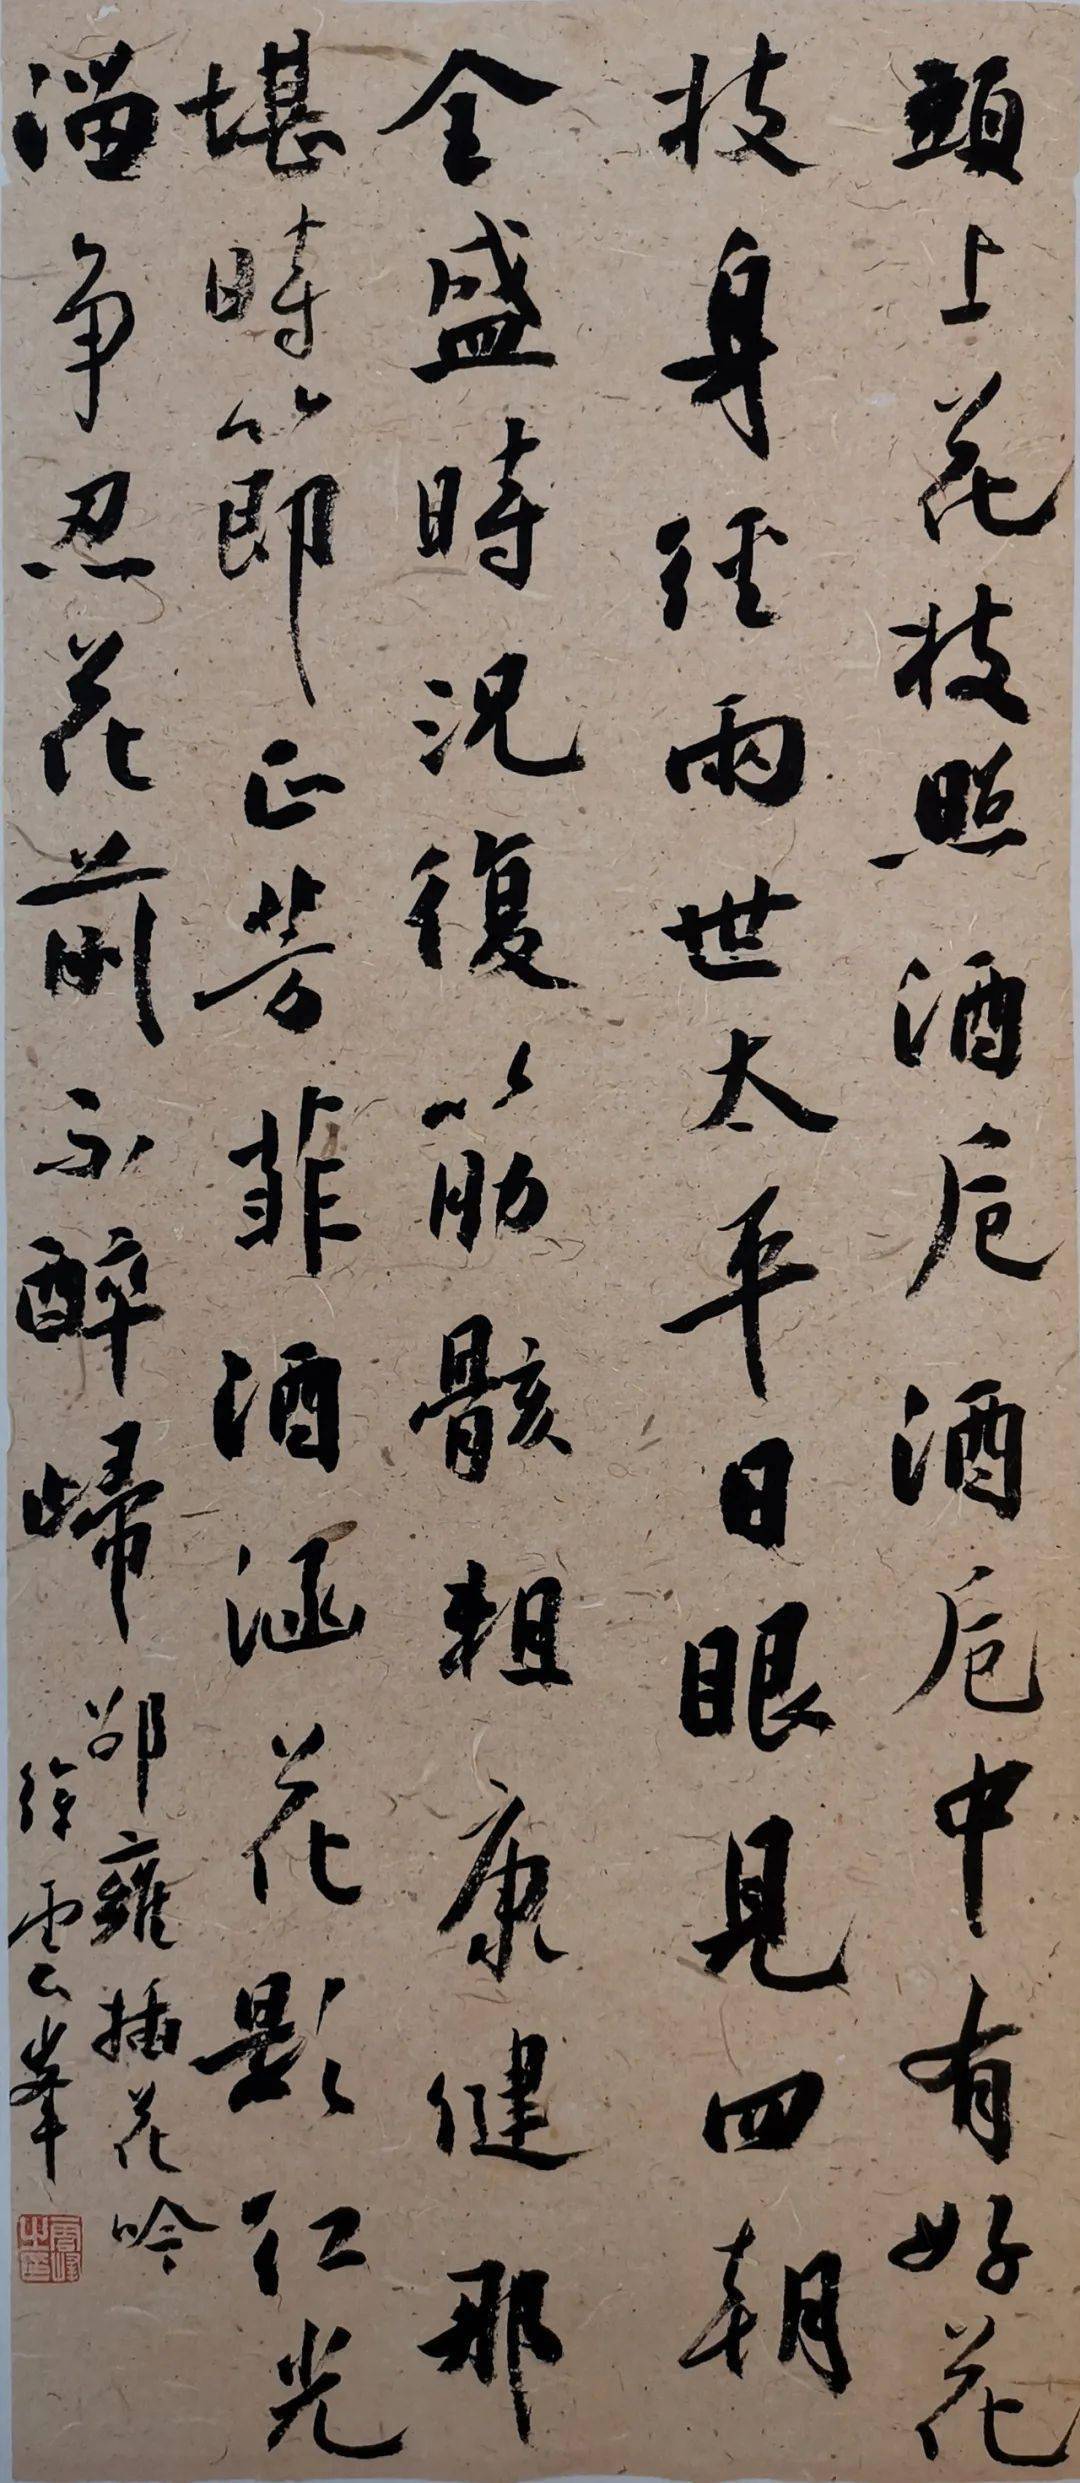 頭上花枝照酒卮酒卮中有好花
枝身經兩世太平日眼見四朝
全盛時況復筋骸粗康健那
堪時節正芳菲酒涵花影紅光
溜争忍花前不醉歸
邵雍插花吟
徐雲峯
雲峰之印